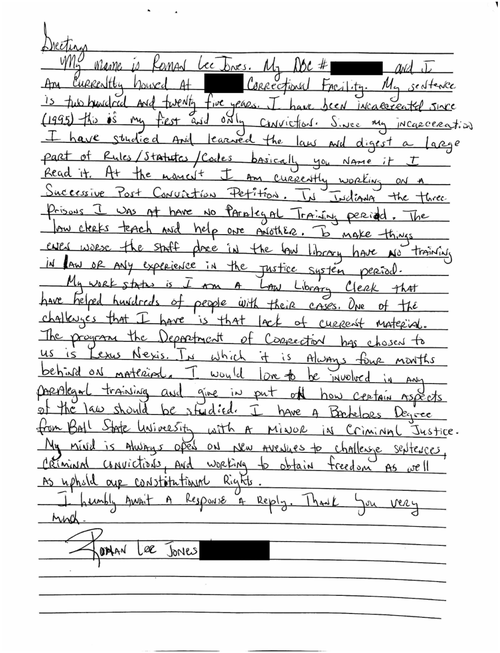 Greetings
My name is Roman Lee Jones. My DOC # and I
Am Currently housed At Correctional Facility. My sentence
is two hundred and twenty five years. I have been incarcerated since
(1995) this is my first and only conviction. Since my incarceration
I have studied and learned the laws and digest a large
part of Rules/Statutes/Codes basically you name it I
Read it. At the moment I am currently working on a
Successive Post Conviction Petition. In Indiana the three
Prisons I was at have no Paralegal Training period. The
law clerks teach and help one another. To make things
even worse the staff place in the law library have no training
in law or any experience in the justice system period.
My work status is I am a Law Library Clerk that
have helped hundreds of people with their cases. One of the
challenges that I have is that lack of current material.
The program the Department of Correction has chosen to
us is Lexus Nexis. In which it is always four months
behind on material. I would love to be involved in any
paralegal training and give in put on how certain aspects
of the law should be studied. I have a Bachelors Degree
from Ball State University with a minor in Criminal Justice.
My mind is always open on new avenues to challenge sentences,
criminal convictions, and working to obtain freedom as well
as uphold our constitutional Rights.
I humbly await a Response a Reply. Thank you very
much.
Roman Lee Jones